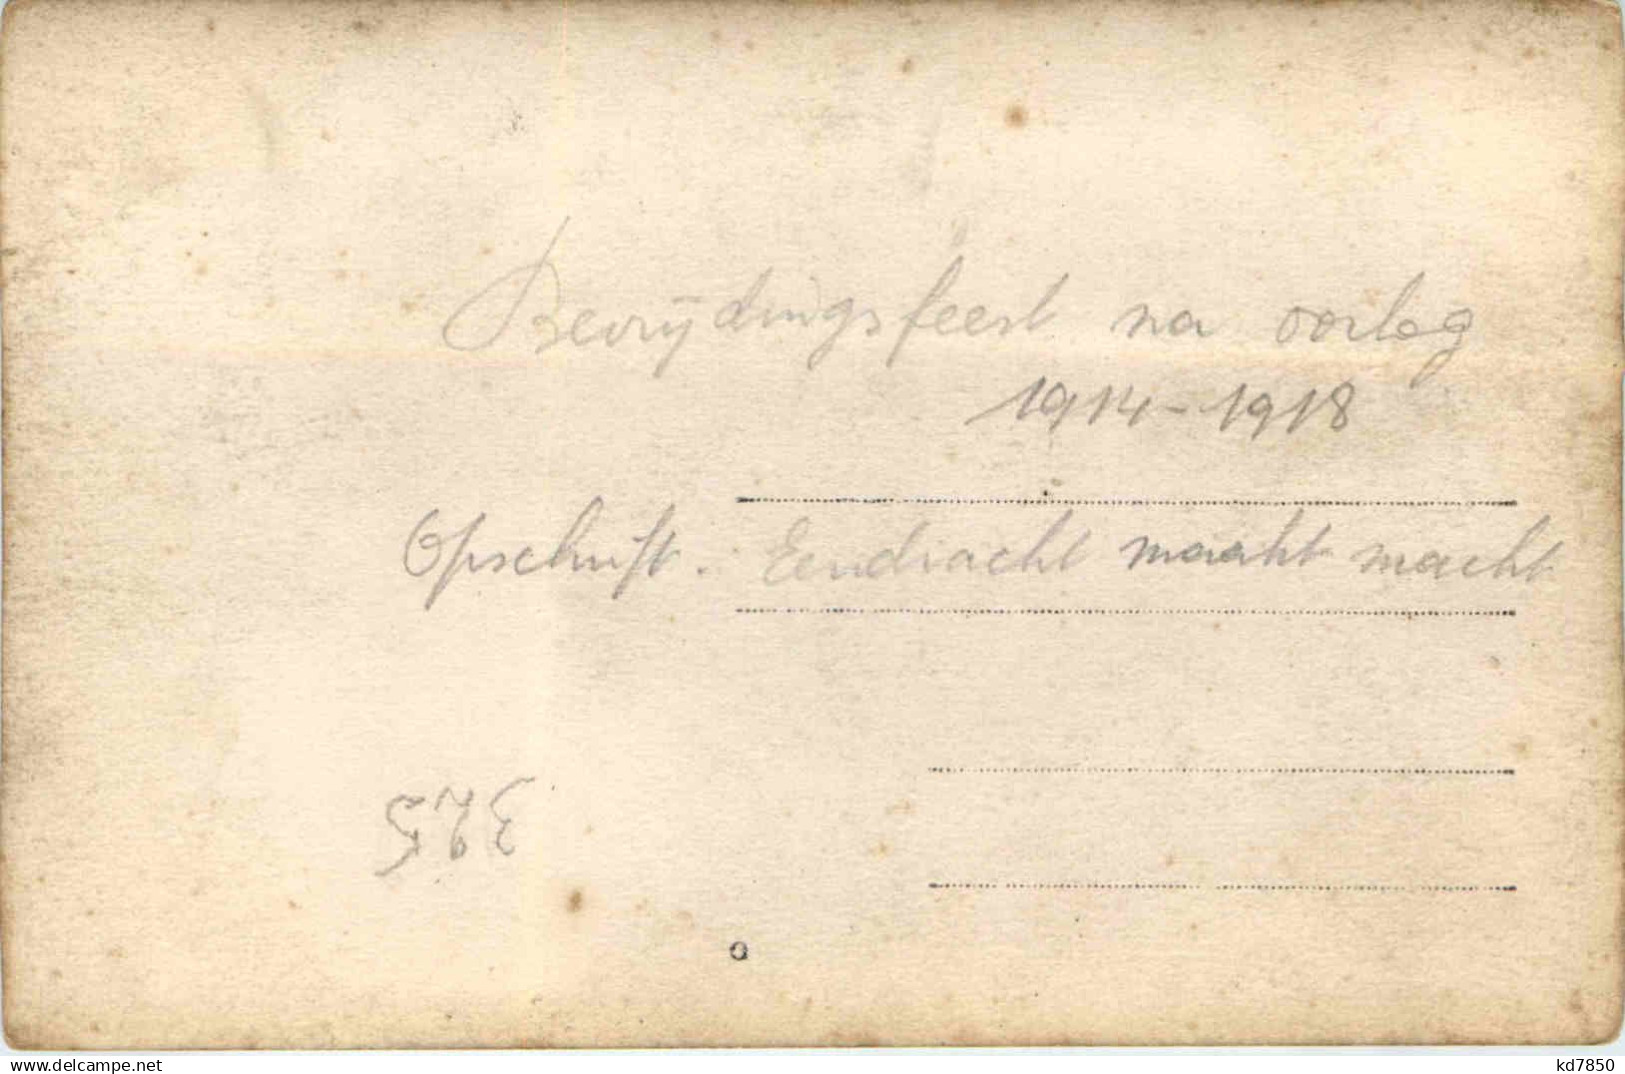 Bevrijdingsfeest na oorlog
1914-1918
Opschrift. Eendracht maakt macht
325
o
www.delcampe.net
kd7850